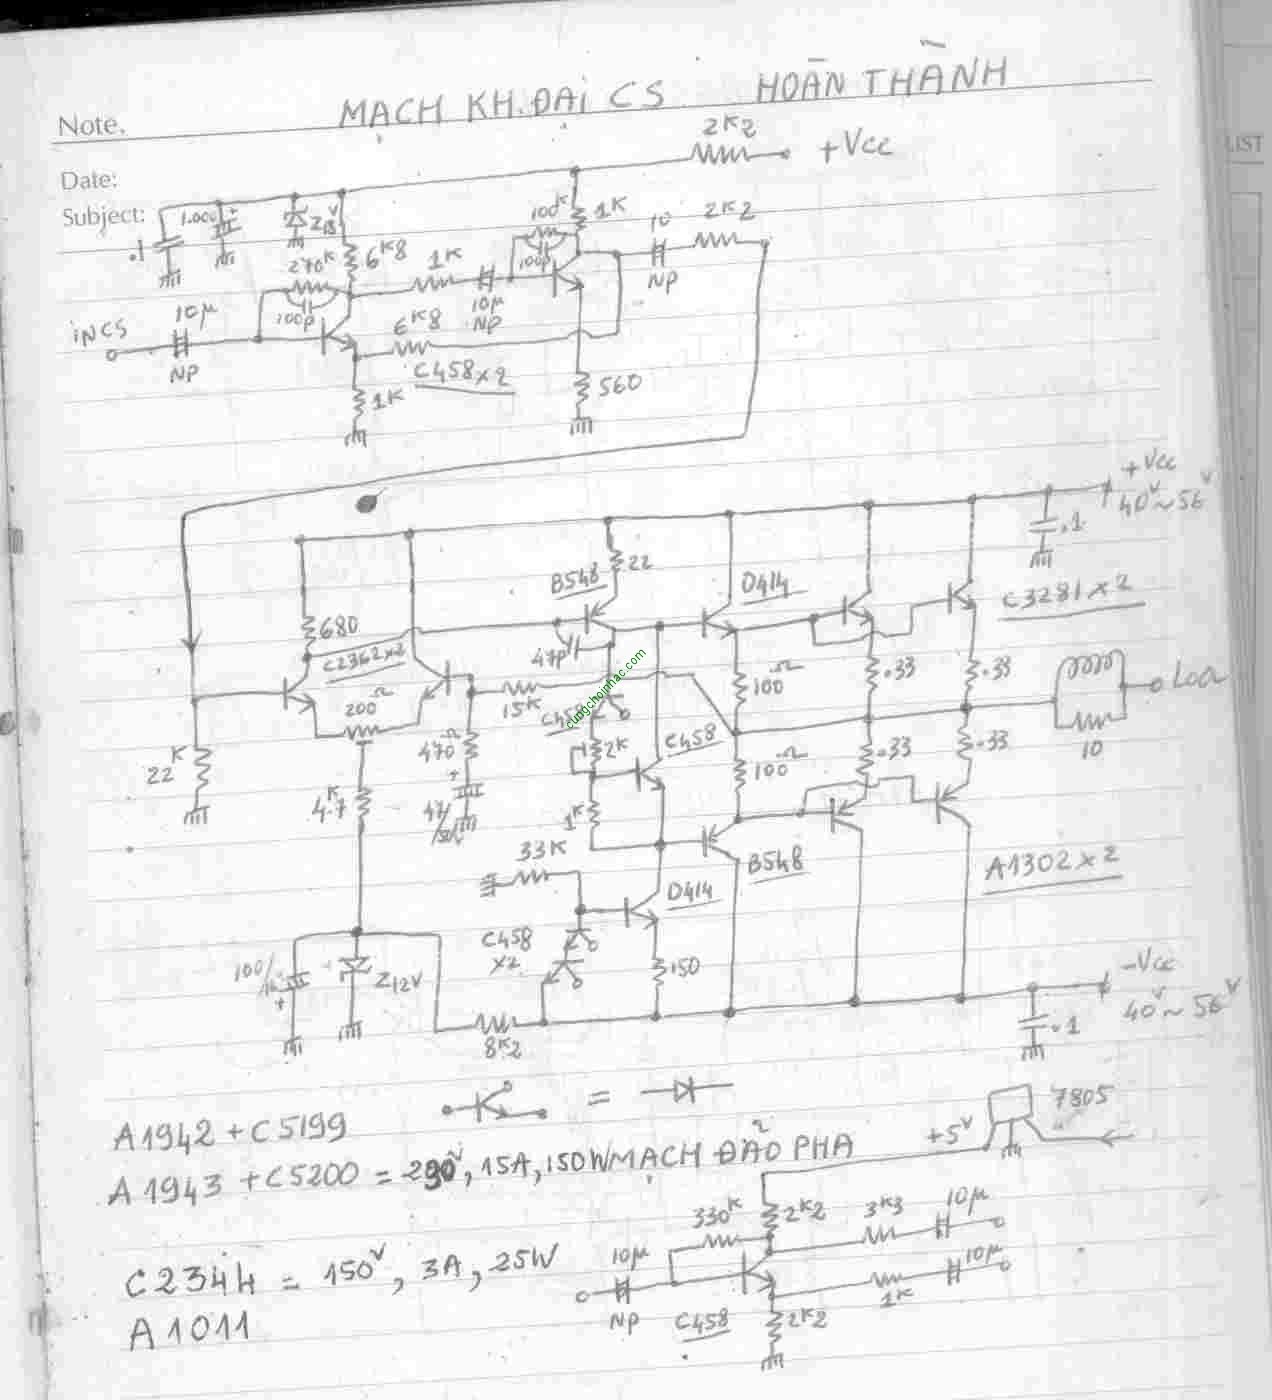 MẠCH KH.ĐẠI CS HOÀN THÀNH
Note.
Date:
Subject:
LIST
2K2
+Vcc
.1
1.000
+
Z18V
6K8
270K
100p
1K
10µ
NP
100K
100p
1K
10
NP
2K2
iNCS
10µ
NP
6K8
C458x2
1K
560
+Vcc
40V~56V
.1
B548
22
D414
C3281x2
680
C2362x2
47p
200Ω
15K
C458
100Ω
.33
.33
Loa
10
22K
470Ω
2K
C458
100Ω
.33
.33
4.7K
+
47/50V
1K
33K
B548
A1302x2
D414
C458
x2
100/
+
Z12V
150
8K2
-Vcc
40V~56V
.1
=
A1942 + C5199
A1943 + C5200 = 230V, 15A, 150W
MẠCH ĐẢO PHA
+5V
7805
C2344 = 150V, 3A, 25W
A1011
330K
2K2
3K3
10µ
10µ
NP
C458
1K
10µ
2K2
cungchoinhac.com